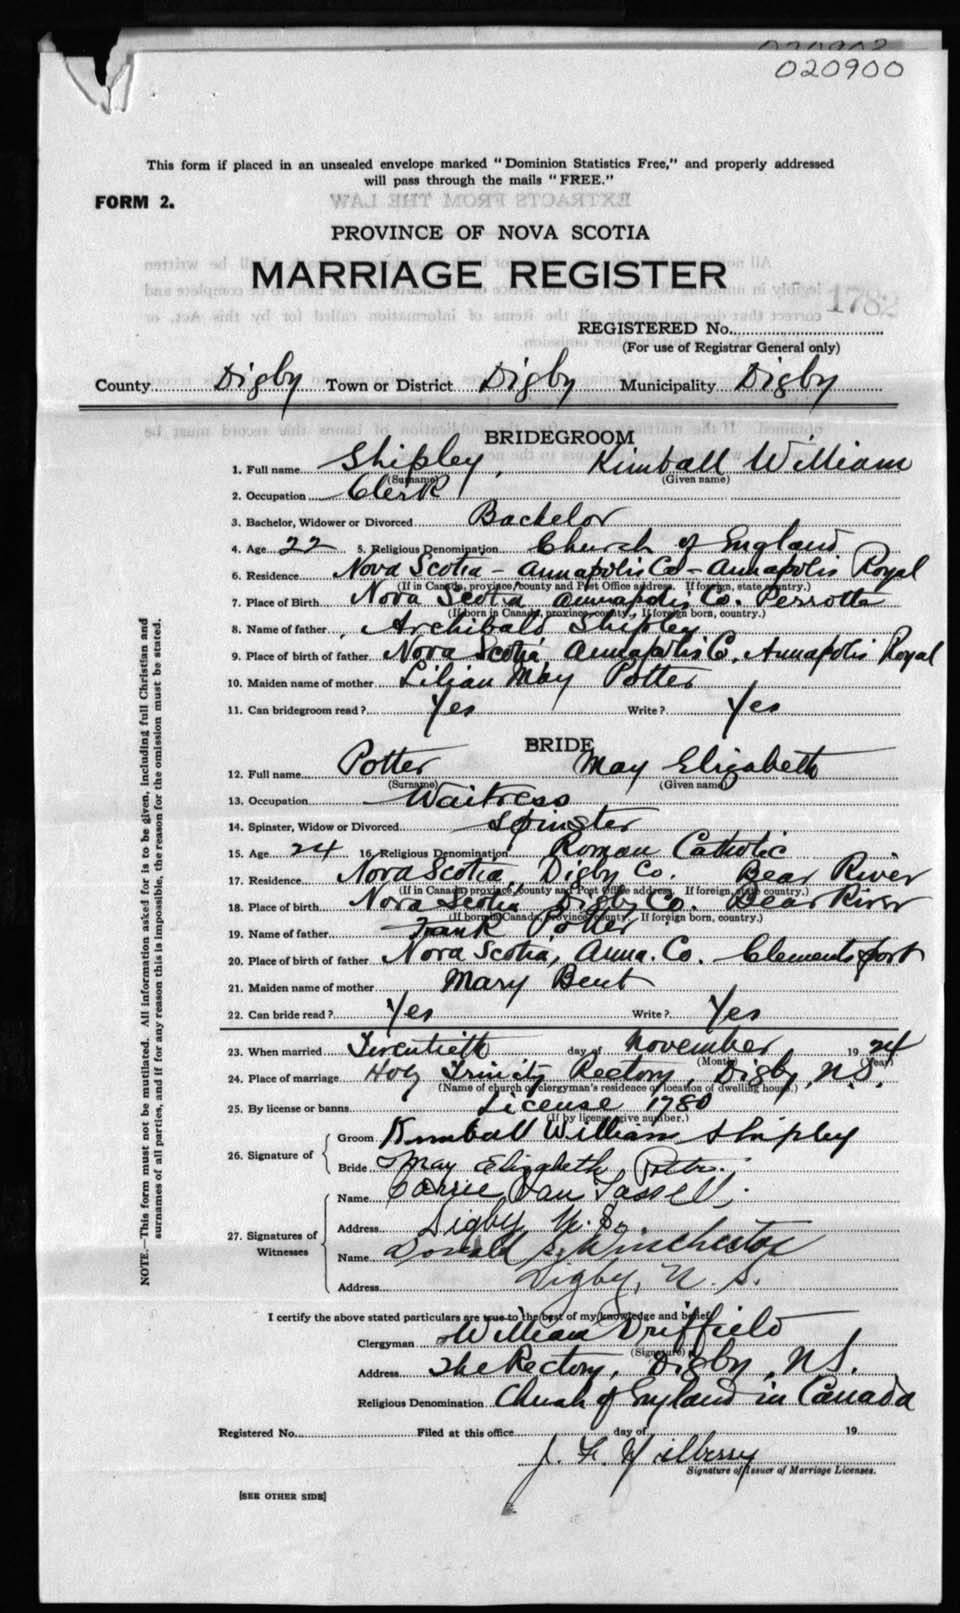 020900
This form if placed in an unsealed envelope marked "Dominion Statistics Free," and properly addressed
will pass through the mails "FREE."
FORM 2.
PROVINCE OF NOVA SCOTIA
MARRIAGE REGISTER
1782
REGISTERED No.
(For use of Registrar General only)
County Digby Town or District Digby Municipality Digby
BRIDEGROOM
1. Full name Shipley, Kimball William
(Surname) (Given name)
2. Occupation Clerk
3. Bachelor, Widower or Divorced Bachelor
4. Age 22 5. Religious Denomination Church of England
6. Residence Nova Scotia - Annapolis Co - Annapolis Royal
(If in Canada, province, county and Post Office address. If foreign, state country.)
7. Place of Birth Nova Scotia Annapolis Co. Perrotte
(If born in Canada, province, county. If foreign born, country.)
8. Name of father Archibald Shipley
9. Place of birth of father Nova Scotia, Annapolis Co, Annapolis Royal
10. Maiden name of mother Lilian May Potter
11. Can bridegroom read? Yes Write? Yes
BRIDE
12. Full name Potter May Elizabeth
(Surname) (Given name)
13. Occupation Waitress
14. Spinster, Widow or Divorced Spinster
15. Age 24 16. Religious Denomination Roman Catholic
17. Residence Nova Scotia, Digby Co. Bear River
(If in Canada, province, county and Post Office address. If foreign, state country.)
18. Place of birth Nova Scotia Digby Co. Bear River
(If born in Canada, province, county. If foreign born, country.)
19. Name of father Frank Potter
20. Place of birth of father Nova Scotia, Anna. Co. Clementsport
21. Maiden name of mother Mary Bent
22. Can bride read? Yes Write? Yes
23. When married Twentieth day of November 1924
(Month) (Year)
24. Place of marriage Holy Trinity Rectory, Digby, N.S.
(Name of church or clergyman's residence or location of dwelling house.)
25. By license or banns License 1780
(If by license give number.)
26. Signature of
Groom Kimball William Shipley
Bride May Elizabeth Potter.
27. Signatures of Witnesses
Name Carrie Van Tassell,
Address Digby N.S.
Name Donald S. Winchester
Address Digby, N. S.
I certify the above stated particulars are true to the best of my knowledge and belief
Clergyman William Driffield
(Signature)
Address The Rectory, Digby, N.S.
Religious Denomination Church of England in Canada
Registered No. Filed at this office day of 19
Signature of Issuer of Marriage Licenses.
[SEE OTHER SIDE]
NOTE.—This form must not be mutilated. All information asked for is to be given, including full Christian and
surnames of all parties, and if for any reason this is impossible, the reason for the omission must be stated.